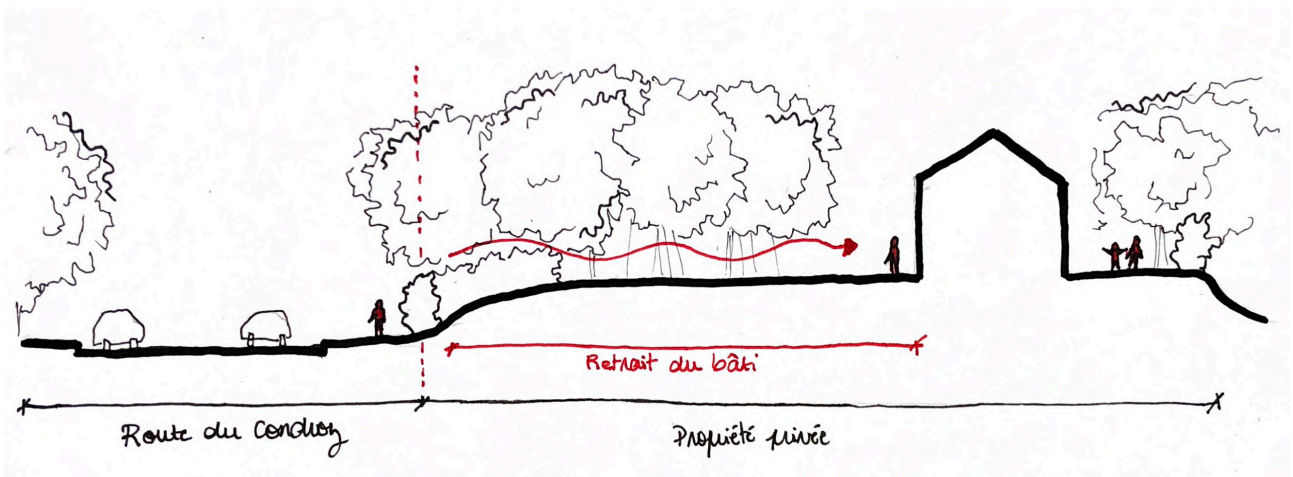 Retrait du bâti
Route du Condroz
Propriété privée